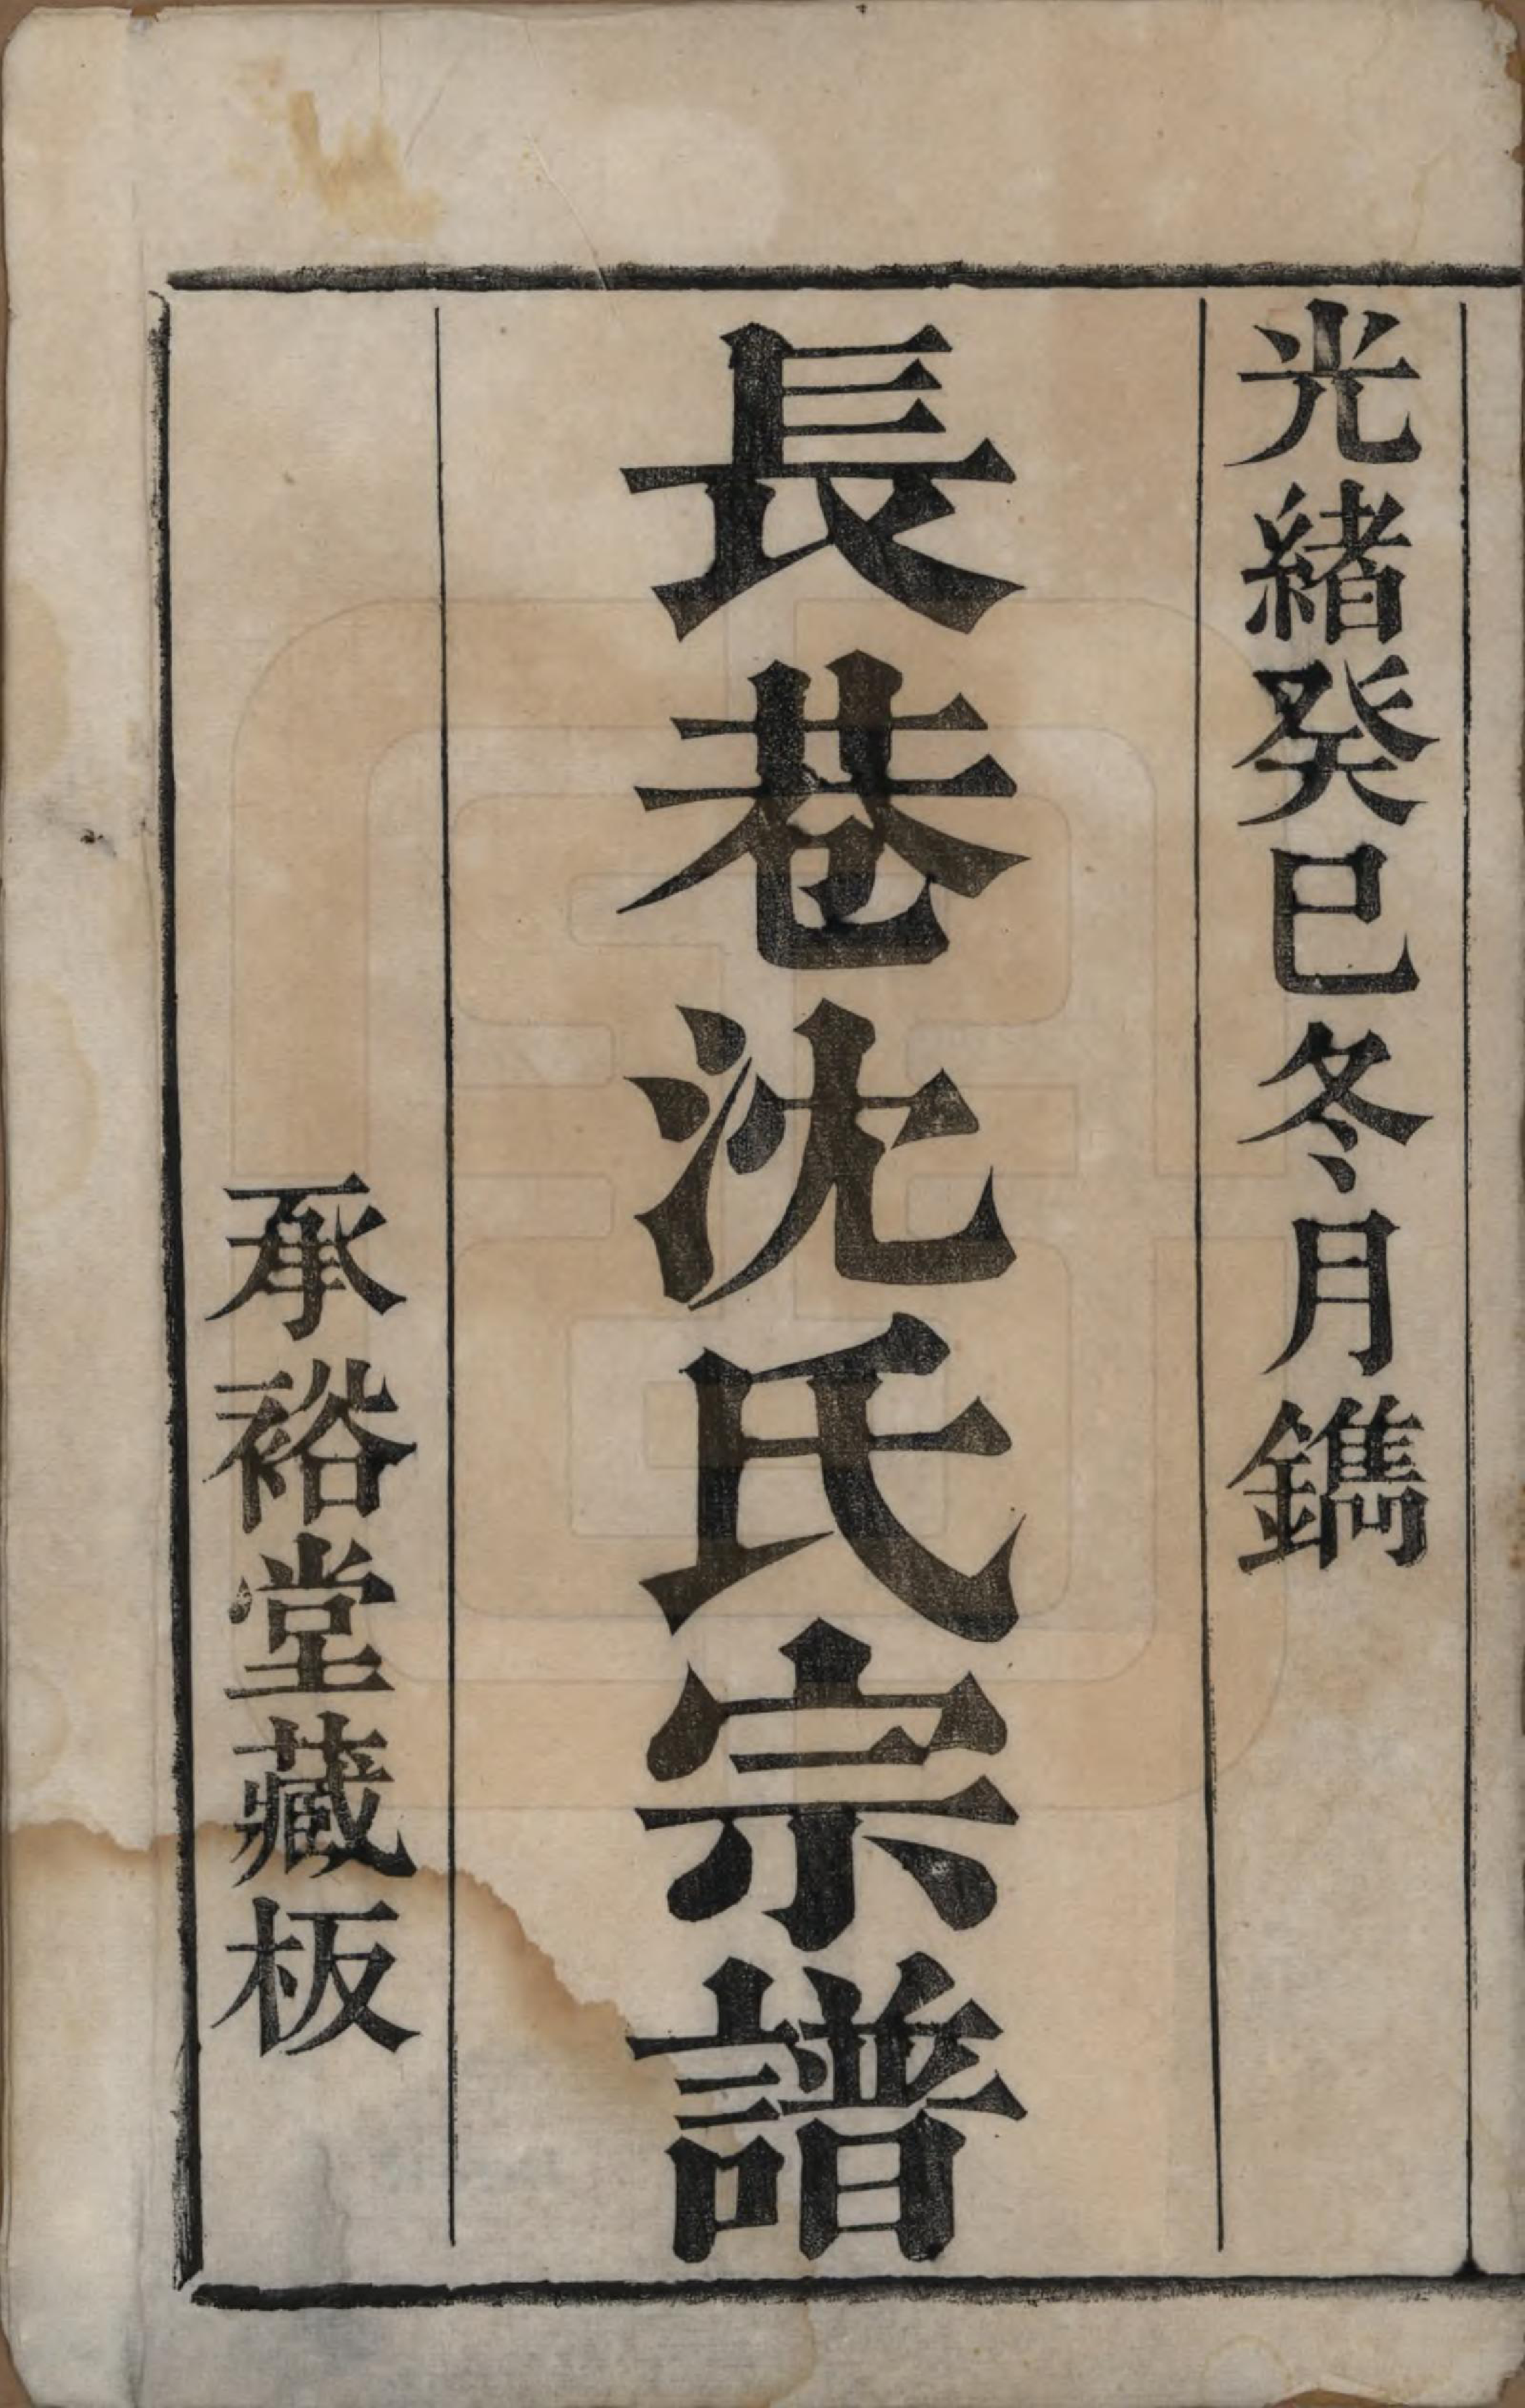 光緒癸巳冬月鐫
長巷沈氏宗譜
承裕堂藏板